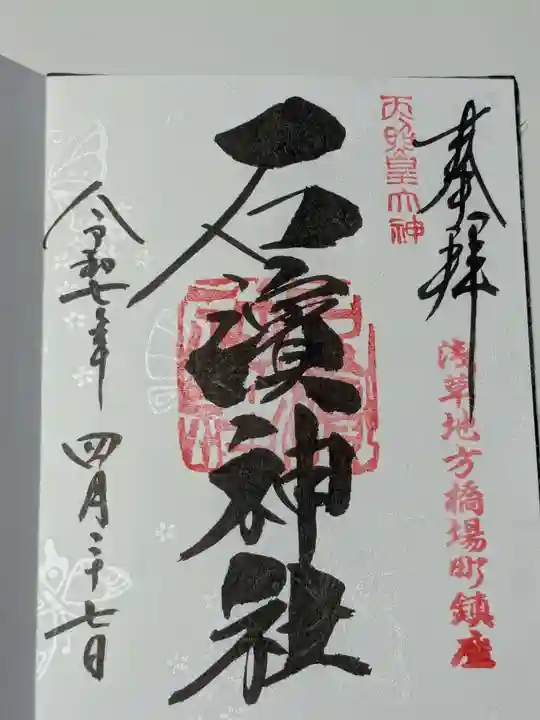 奉拝
天照皇大神
浅草地方橋場町鎮座
石濱神社
令和七年 四月二十七日